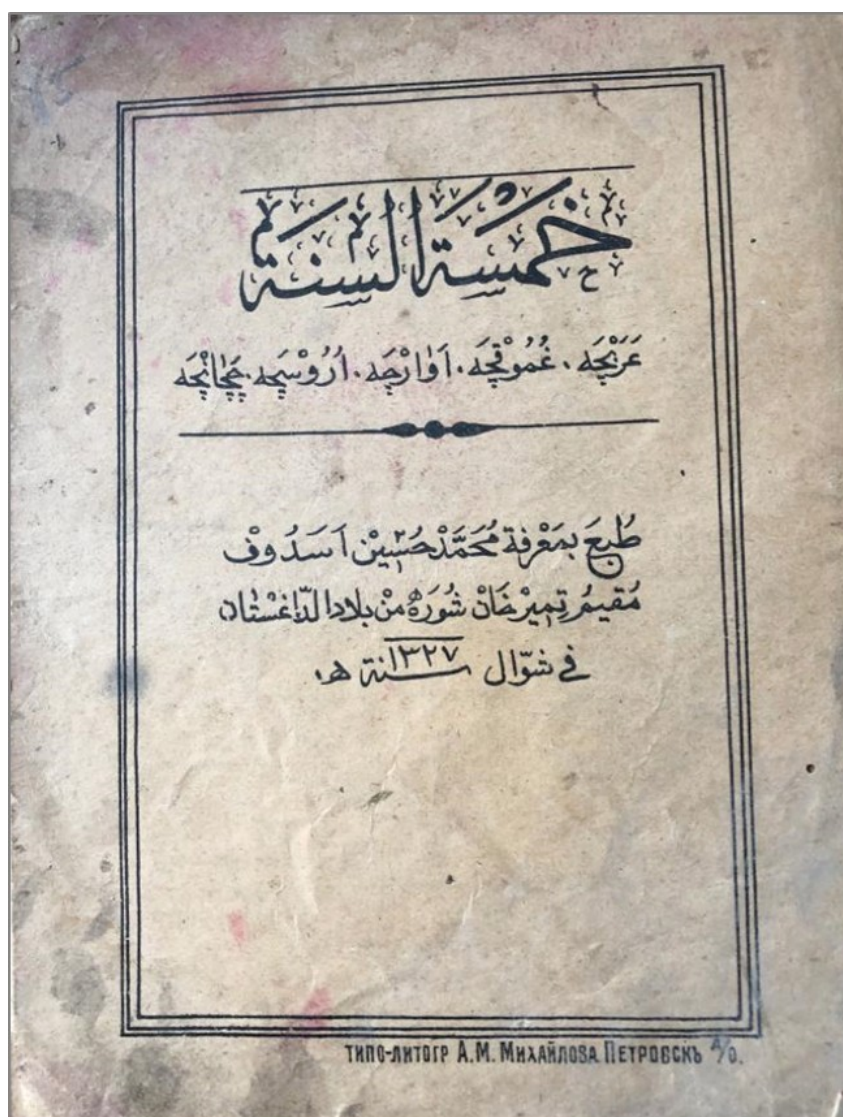 خَمْسَة اَلْسِنَة
عَرَبْچَه . غُمُوْقچَه . اَوَارْچَه . اُرُوْسچَه . چَچَانْچَه
طُبِعَ بِمَعْرِفَة مُحَمَّدْ حُسَيْن اَسَدُوفْ
مُقِيمُ تِمِيرْخَانْ شُورَهْ مِنْ بِلَاد الدَّاغسْتَان
فى شوّال سنة ١٣٢٧ ھ.
ТИПО-ЛИТОГР А.М. МИХАЙЛОВА ПЕТРОВСКЪ Д/О.